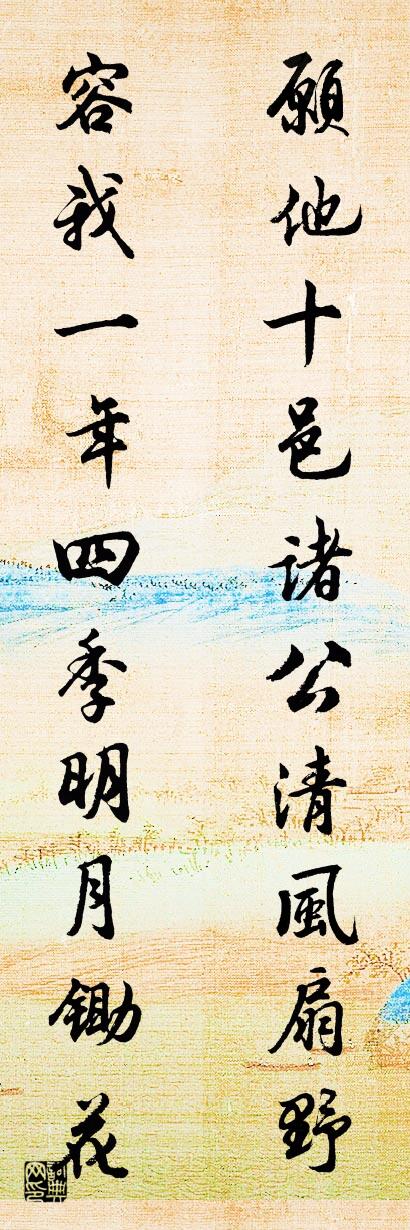 願他十邑諸公清風扇野
容我一年四季明月鋤花